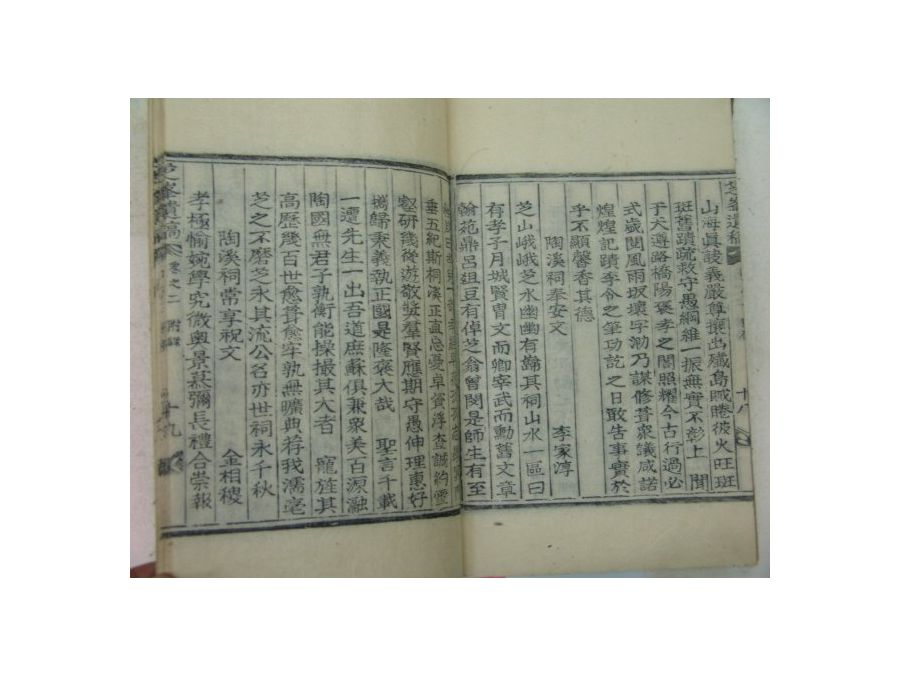 芝峯遺稿
十八
山海眞諼義嚴尊攘出殲島賊睠彼火旺斑
斑舊蹟疏救守愚綱維一振無實不彰上聞
于天遵路橋陽褒孝之閣照耀今古行過必
式歲閱風雨圾壞字泐乃謀修葺衆議咸諾
煌煌記蹟李令之筆功訖之日敢告事實於
乎不顯馨香其德
陶溪祠奉安文 李家淳
芝山峨峨芝水幽幽有巋其祠山水一區曰
有孝子月城賢胄文而卿宰武而勳舊文章
翰苑鼎呂俎豆有倬芝翁曾閔是師生有至
垂五紀斯桐溪正直忘憂阜賓浮查誠約雪
壑研幾後遊敬奬羣賢應期守愚伸理惠好
攜歸秉義執正國是隆褒大哉 聖言千載
一遭先生一出吾道庶蘇俱兼衆美百源瀜
陶國無君子孰衡能操撮其大者 寵旌其
高歷幾百世愈葺愈牢孰無曠典荐我濡毫
芝之不磨芝永其流公名亦世祠永千秋
陶溪祠常享祝文 金相稷
孝極愉婉學究微奧景慕彌長禮合崇報
芝峯遺稿 卷之二 附錄 十九